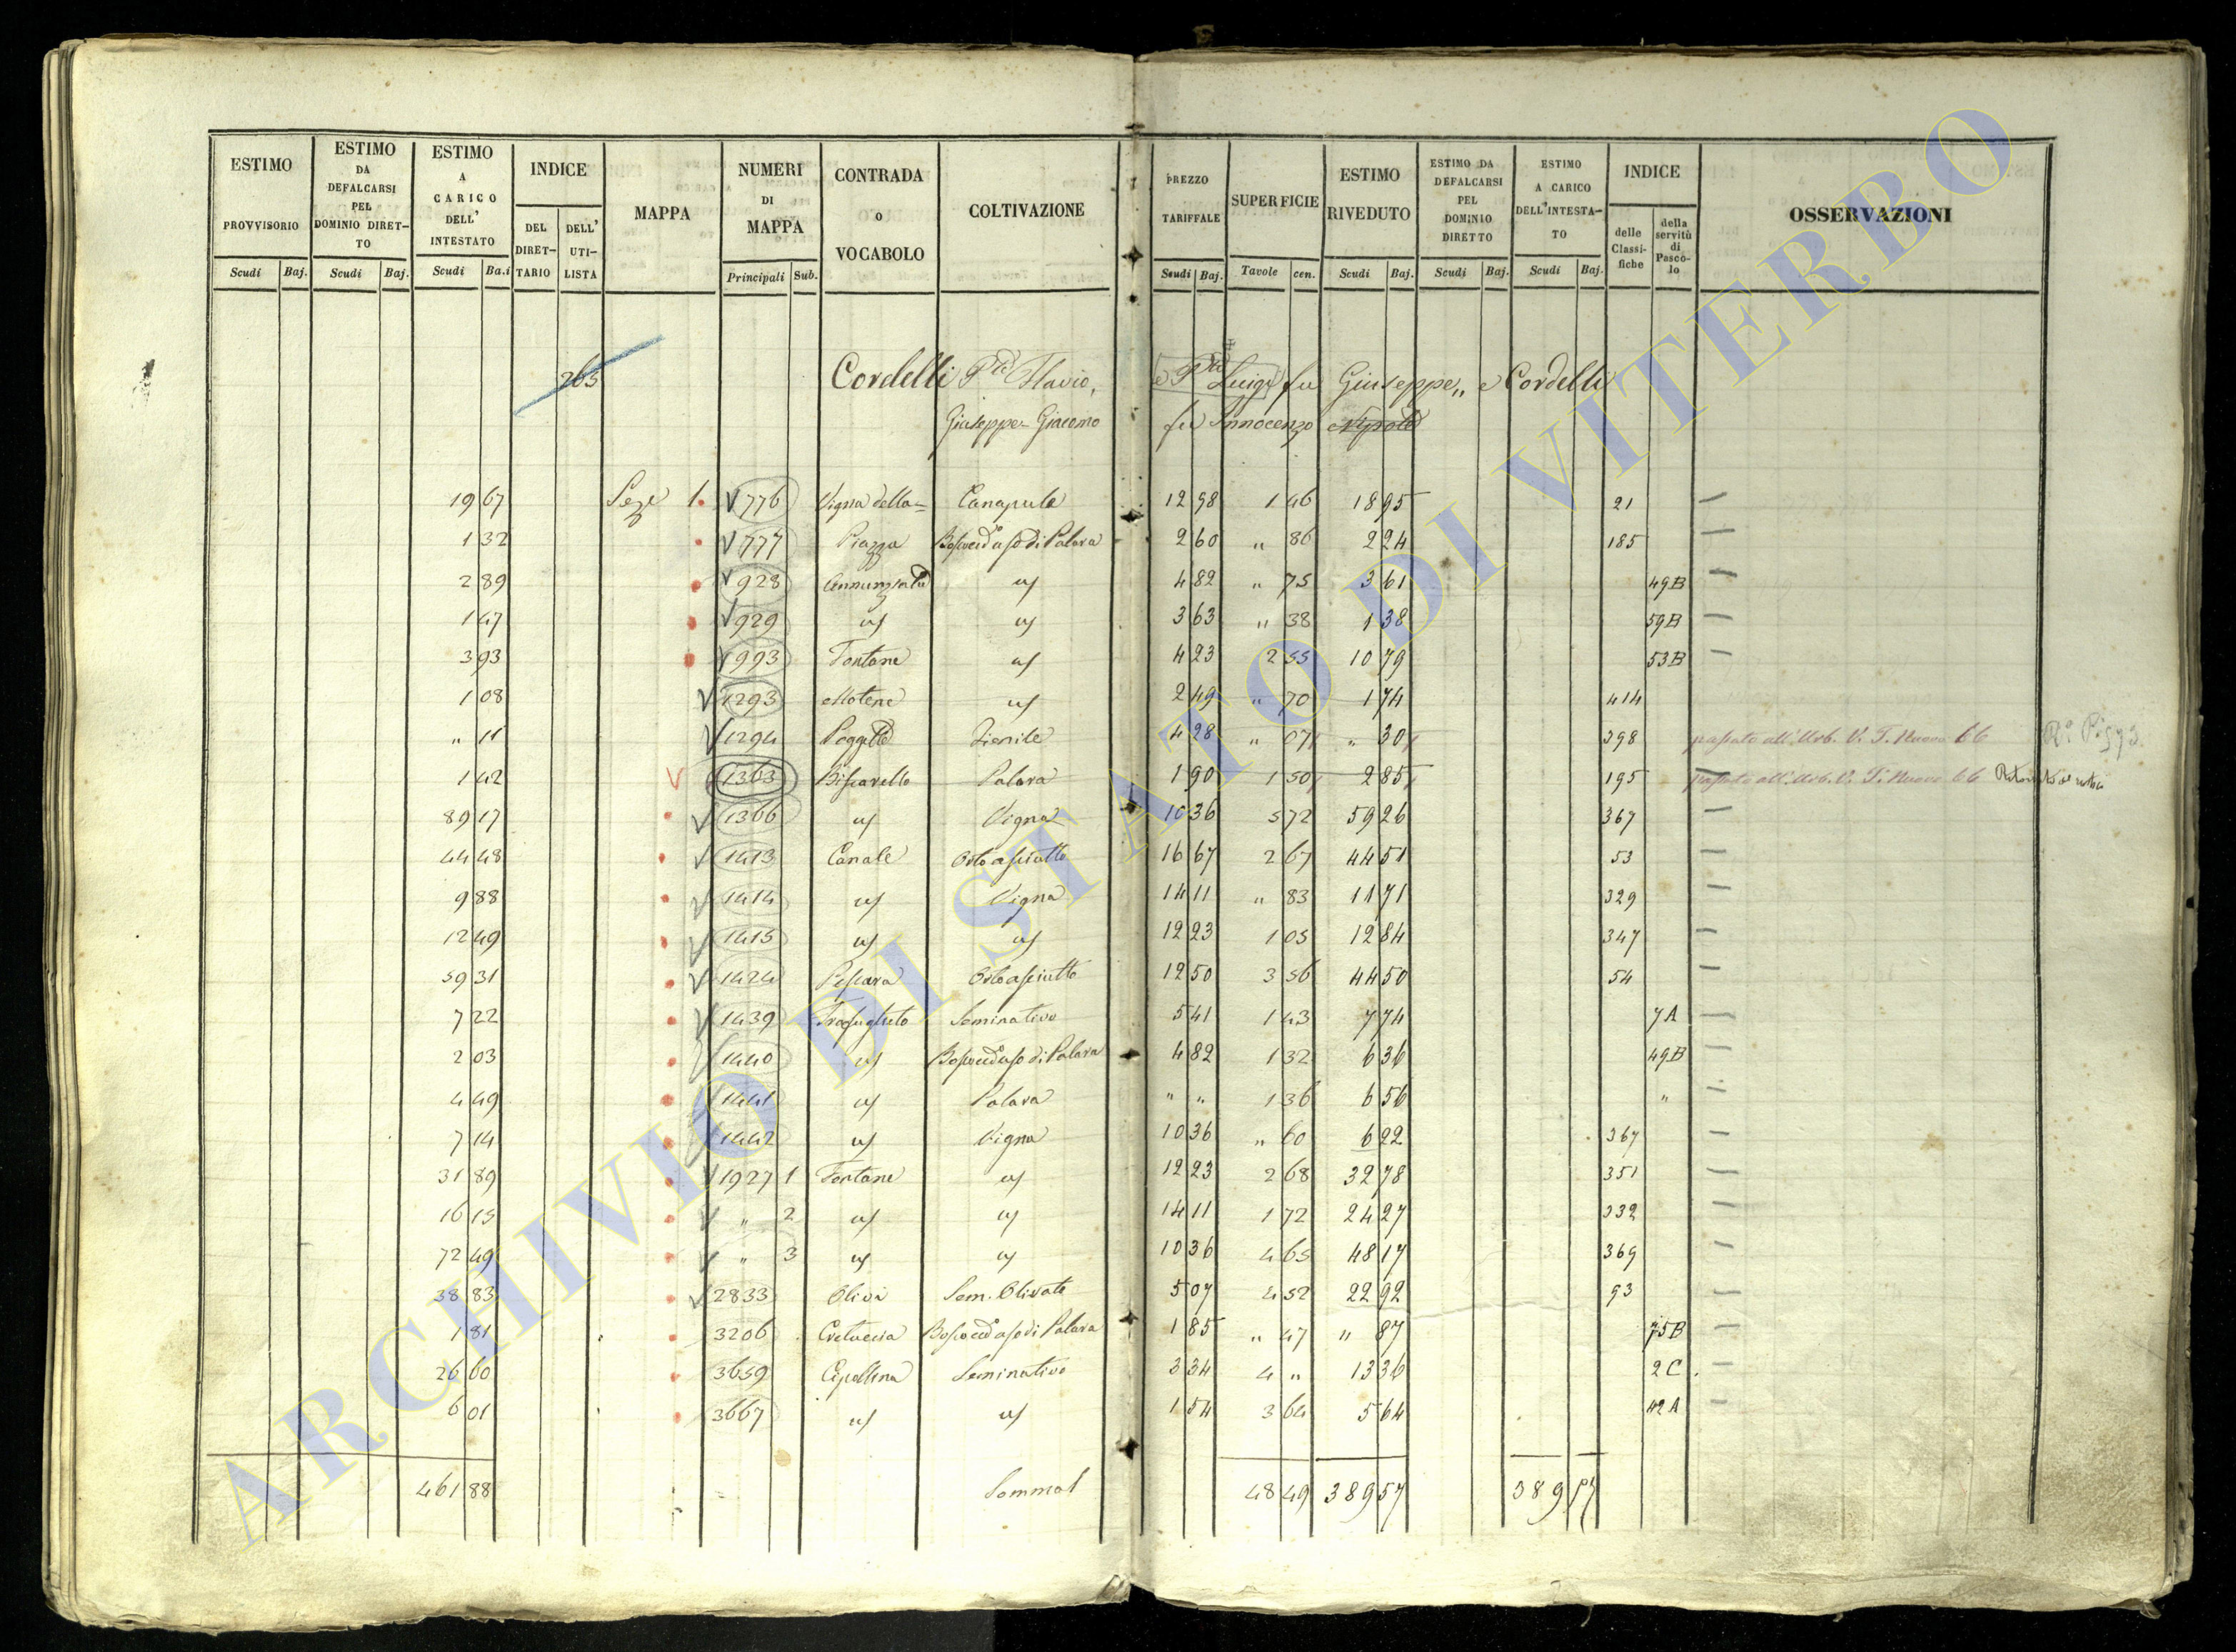 ESTIMO PROVVISORIO Scudi Baj.
ESTIMO DA DEFALCARSI PEL DOMINIO DIRET-TO Scudi Baj.
ESTIMO A CARICO DELL' INTESTATO Scudi Ba.i
INDICE DEL DIRET-TARIO DELL' UTI-LISTA
MAPPA
NUMERI DI MAPPA Principali Sub.
CONTRADA O VOCABOLO
COLTIVAZIONE
PREZZO TARIFFALE Scudi Baj.
SUPERFICIE Tavole cen.
ESTIMO RIVEDUTO Scudi Baj.
ESTIMO DA DEFALCARSI PEL DOMINIO DIRETTO Scudi Baj.
ESTIMO A CARICO DELL'INTESTA-TO Scudi Baj.
INDICE delle Classi-fiche della servitù di Pasco-lo
OSSERVAZIONI
263 Cordelli Flavio, e Luigi fu Giuseppe,, e Cordelli
Giuseppe= Giacomo fu Innocenzo
19 67 Seze 1. 776 Vigna della= Canapule 12 98 1 46 18 95 21 —
1 32 777 Piazza Boscoceduo di Palara 2 60 " 86 2 24 185 —
2 89 928 Annunziata uj 4 82 " 75 3 61 49B —
1 47 929 uj uj 3 63 " 38 1 38 59B —
3 93 993 Fontane uj 4 23 2 55 10 79 53B —
1 08 1293 Motene uj 2 49 " 70 1 74 414
" 11 1294 Poggetto Fienile 4 28 " 07 " 30 398 passato all'Urb. V. T. Nuovo 66
1 42 1363 Biscarello Palara 1 90 1 50 2 85 195 passato all'Urb. V. T. Nuovo 66
89 17 1366 uj Vigna 10 36 5 72 59 26 367 —
44 48 1413 Canale Orto asciutto 16 67 2 67 44 51 53 —
9 88 1414 uj Vigna 14 11 " 83 11 71 329 —
12 49 1415 uj uj 12 23 1 05 12 84 347 —
59 31 1424 Pescara Orto asciutto 12 50 3 56 44 50 54 —
7 22 1439 Seminativo 5 41 1 43 7 74 7A —
2 03 1440 uj Boscoceduo di Palara 4 82 1 32 6 36 49B —
4 49 1441 uj Palara " " 1 36 6 56 " —
7 14 1442 uj Vigna 10 36 " 60 6 22 367 —
31 89 1927 1 Fontane uj 12 23 2 68 32 78 351 —
16 15 " 2 uj uj 14 11 1 72 24 27 332 —
72 49 " 3 uj uj 10 36 4 65 48 17 369 —
38 83 2833 Olivi Sem. Olivato 5 07 4 52 22 92 93 —
1 81 3206 Cretaccia Boscoceduo di Palara 1 85 " 47 " 87 75B —
26 60 3659 Cipollina Seminativo 3 34 4 " 13 36 2C. —
6 01 3667 uj uj 1 54 3 64 5 64 42A —
461 88 Somma 48 49 389 57 389 57
ARCHIVIO DI STATO DI VITERBO